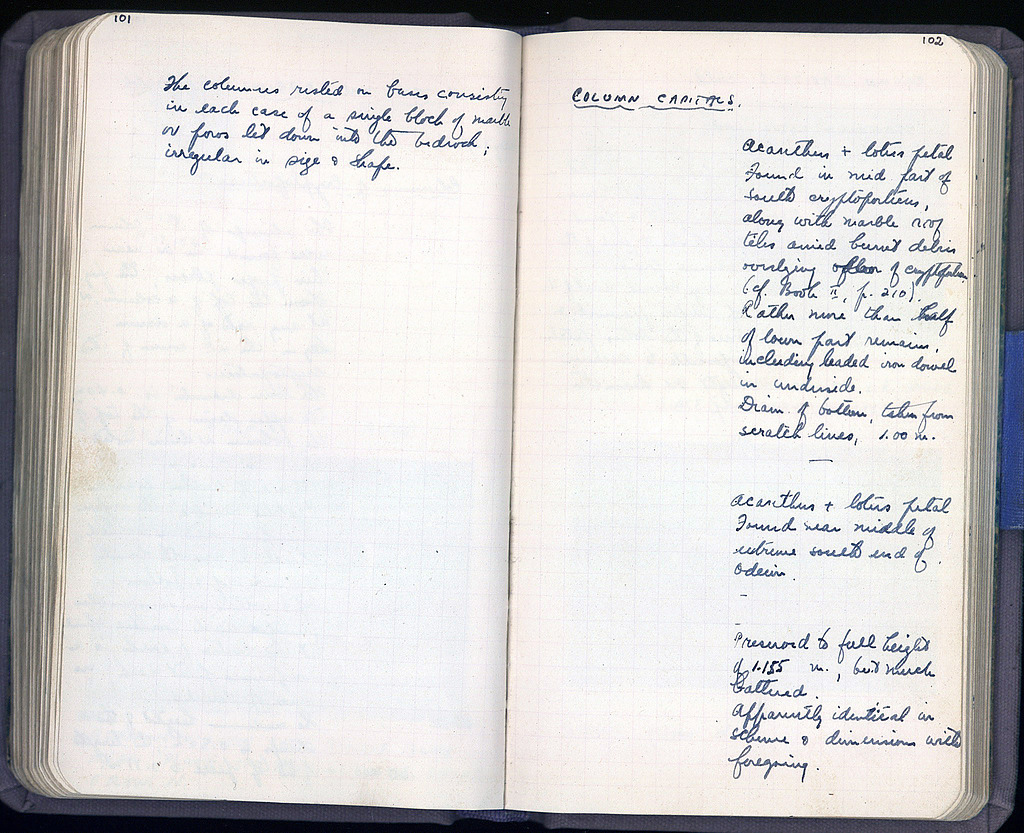 101
The columns rested on bases consisting
in each case of a single block of marble
or poros let down into the bedrock;
irregular in size & shape.
102
COLUMN CAPITALS.
Acanthus + lotus petal
Found in mid part of
south cryptoporticus,
along with marble roof
tiles amid burnt debris
overlying floor of cryptoporticus
(cf. Book II, p. 210).
Rather more than half
of lower part remains,
including leaded iron dowel
in underside.
Diam. of bottom, taken from
scratch lines, 1.00 m.
—
Acanthus + lotus petal
Found near middle of
extreme south end of
Odeion.
-
Preserved to full height
of 1.155 m., but much
battered.
Apparently identical in
scheme & dimensions with
foregoing.